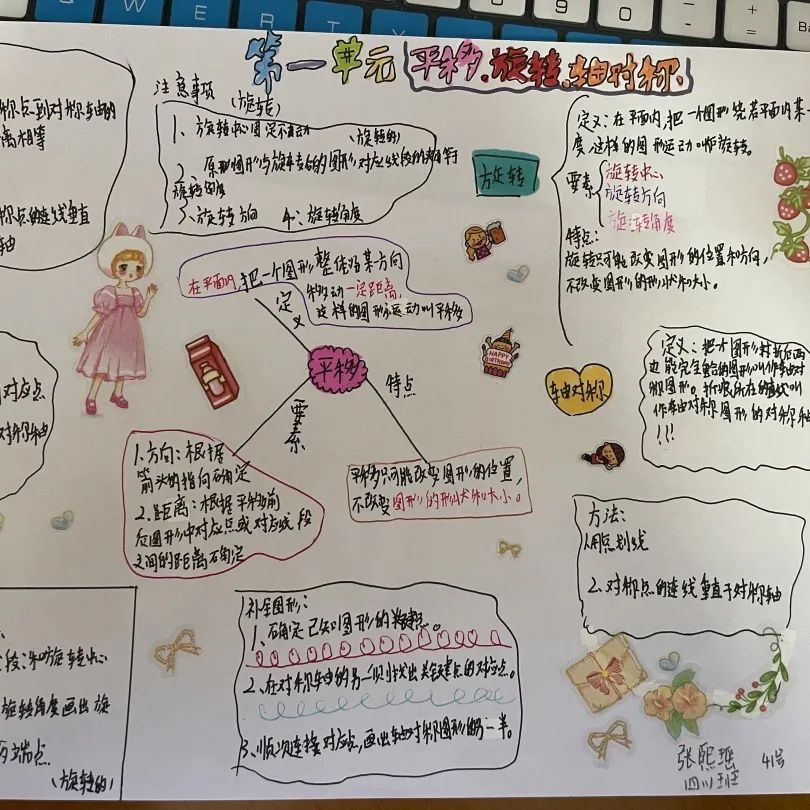 第一单元 平移、旋转、轴对称
注意事项 (旋转)
1、旋转中心固定不动 (旋转的)
2、原形图形与旋转后的图形对应线段的夹角等
旋转角度
3、旋转方向 4、旋转角度
旋转
定义：在平面内，把一个图形绕着平面内某一
度，这样的图形运动叫作旋转。
要素
旋转中心
旋转方向
旋转角度
特点：
旋转只可能改变图形的位置和方向，
不改变图形的形状和大小。
到对称轴的
离相等
称点的连线垂直
轴
在平面内，把一个图形整体沿某方向
移动一定距离，
这样的图形运动叫平移
定义
平移
特点
要素
HAPPY
BIRTHDAY
对应点
对称轴
1.方向：根据
箭头的指向确定
2.距离：根据平移前
后图形中对应点或对应线段
之间的距离确定
平移只可能改变图形的位置，
不改变图形的形状和大小。
轴对称
定义：把个图形对折后两
边能完全重合的图形叫作轴对
称图形。折痕所在的直线叫
作轴对称图形的对称轴
!!!
方法：
1.用点划线
2.对称点的连线垂直于对称轴
补全图形：
1、确定已知图形的关键点。
2、在对称轴的另一侧找出关键点的对应点。
3、顺次连接对应点，画出轴对称图形的另一半。
段和旋转中心
旋转角度画出旋
端点
(旋转的)
张熙瑶 41号
四川班